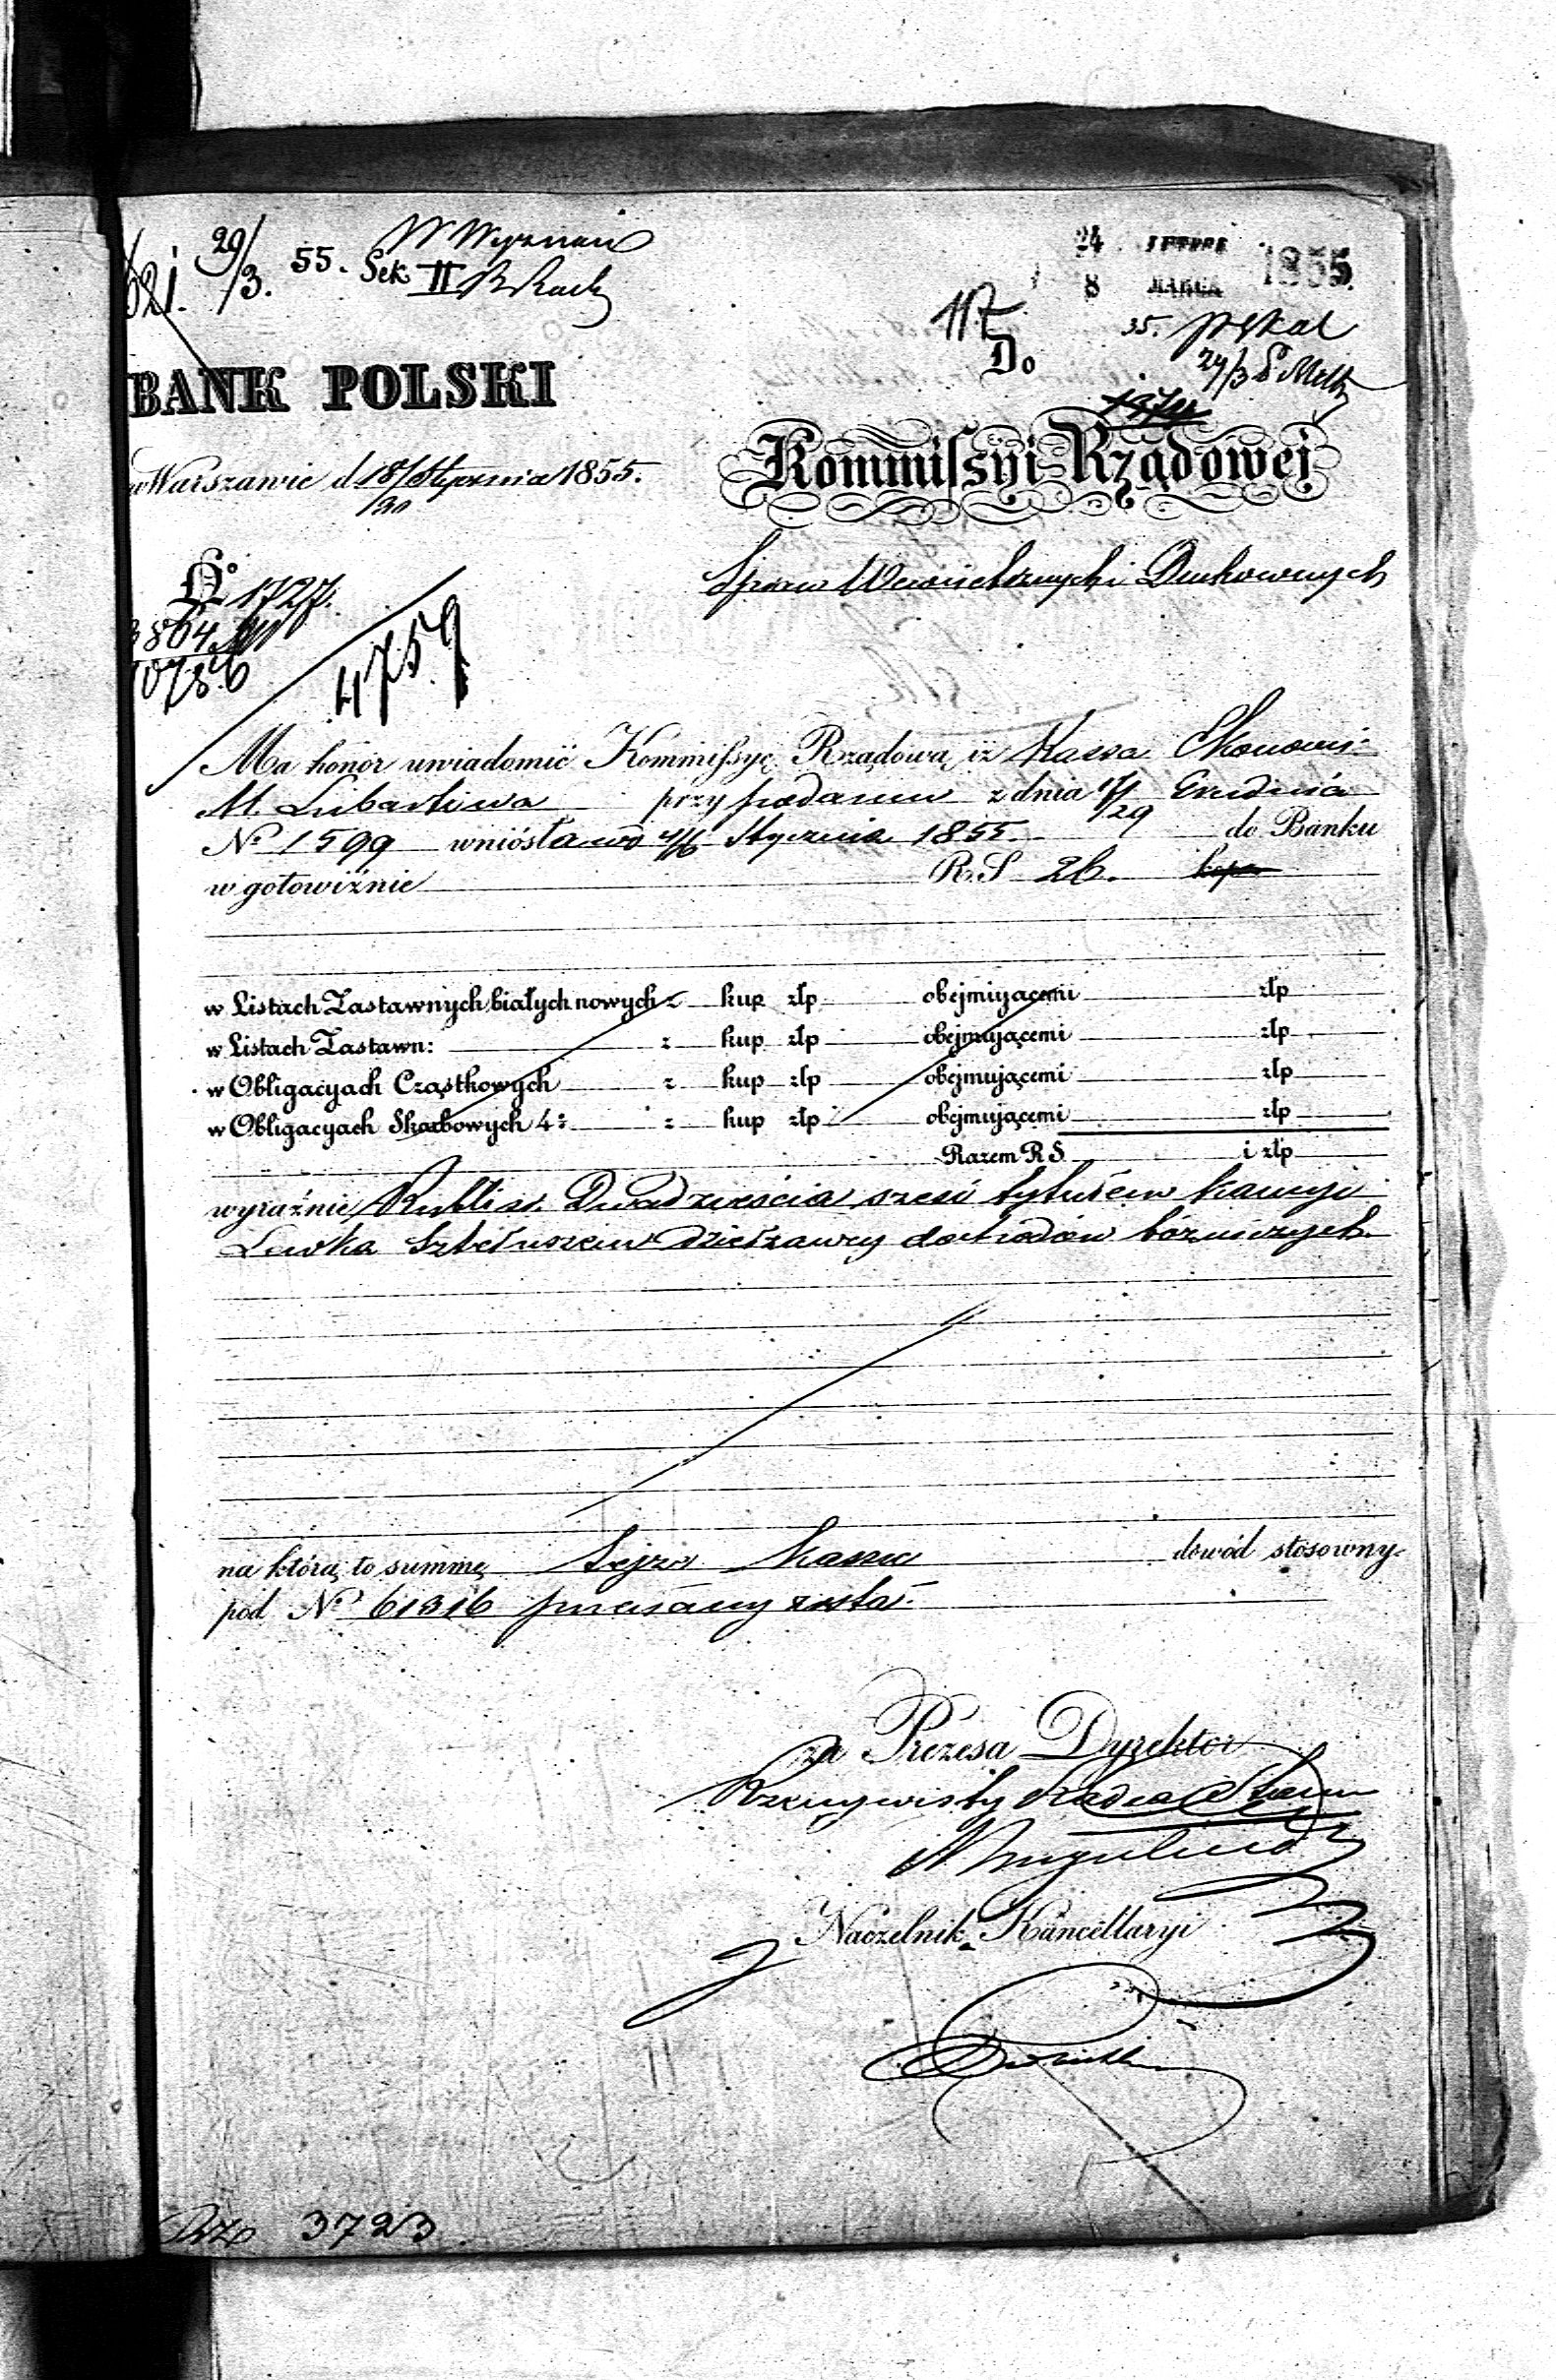 29/3. 55. W Wyznań
621. Sek II
24 LUTEGO 1855
8 MARCA
117
35.
Do
24/3
BANK POLSKI
Kommissyi Rządowej
w Warszawie d. 18/30 Stycznia 1855.
Spraw Wewnętrznych i Duchownych
No 1727.
3864
10756
4759
Ma honor uwiadomić Kommissyę Rządową iż Kassa Ekonomi:
M. Lubartowa przy podaniu z dnia 17/29 Grudnia
No 1599 wniosła w d 4/16 Stycznia 1855 do Banku
w gotowiźnie R.S 26. kop
w Listach Zastawnych białych nowych z kup złp obejmującemi złp
w Listach Zastawn: z kup złp obejmującemi złp
w Obligacyach Cząstkowych z kup złp obejmującemi złp
w Obligacyach Skarbowych 4: z kup złp obejmującemi złp
Razem R S i złp
wyraźnie Rubli sr. Dwadzieścia sześć tytułem kaucyi
Lewka dzierżawcy dochodów bóżniczych.
na którą to summę tejże Kassie dowód stosowny
pod No 61316 przesłany został.
za Prezesa Dyrektor
Rzeczywisty Radca Stanu
Naczelnik Kancellaryi
3723